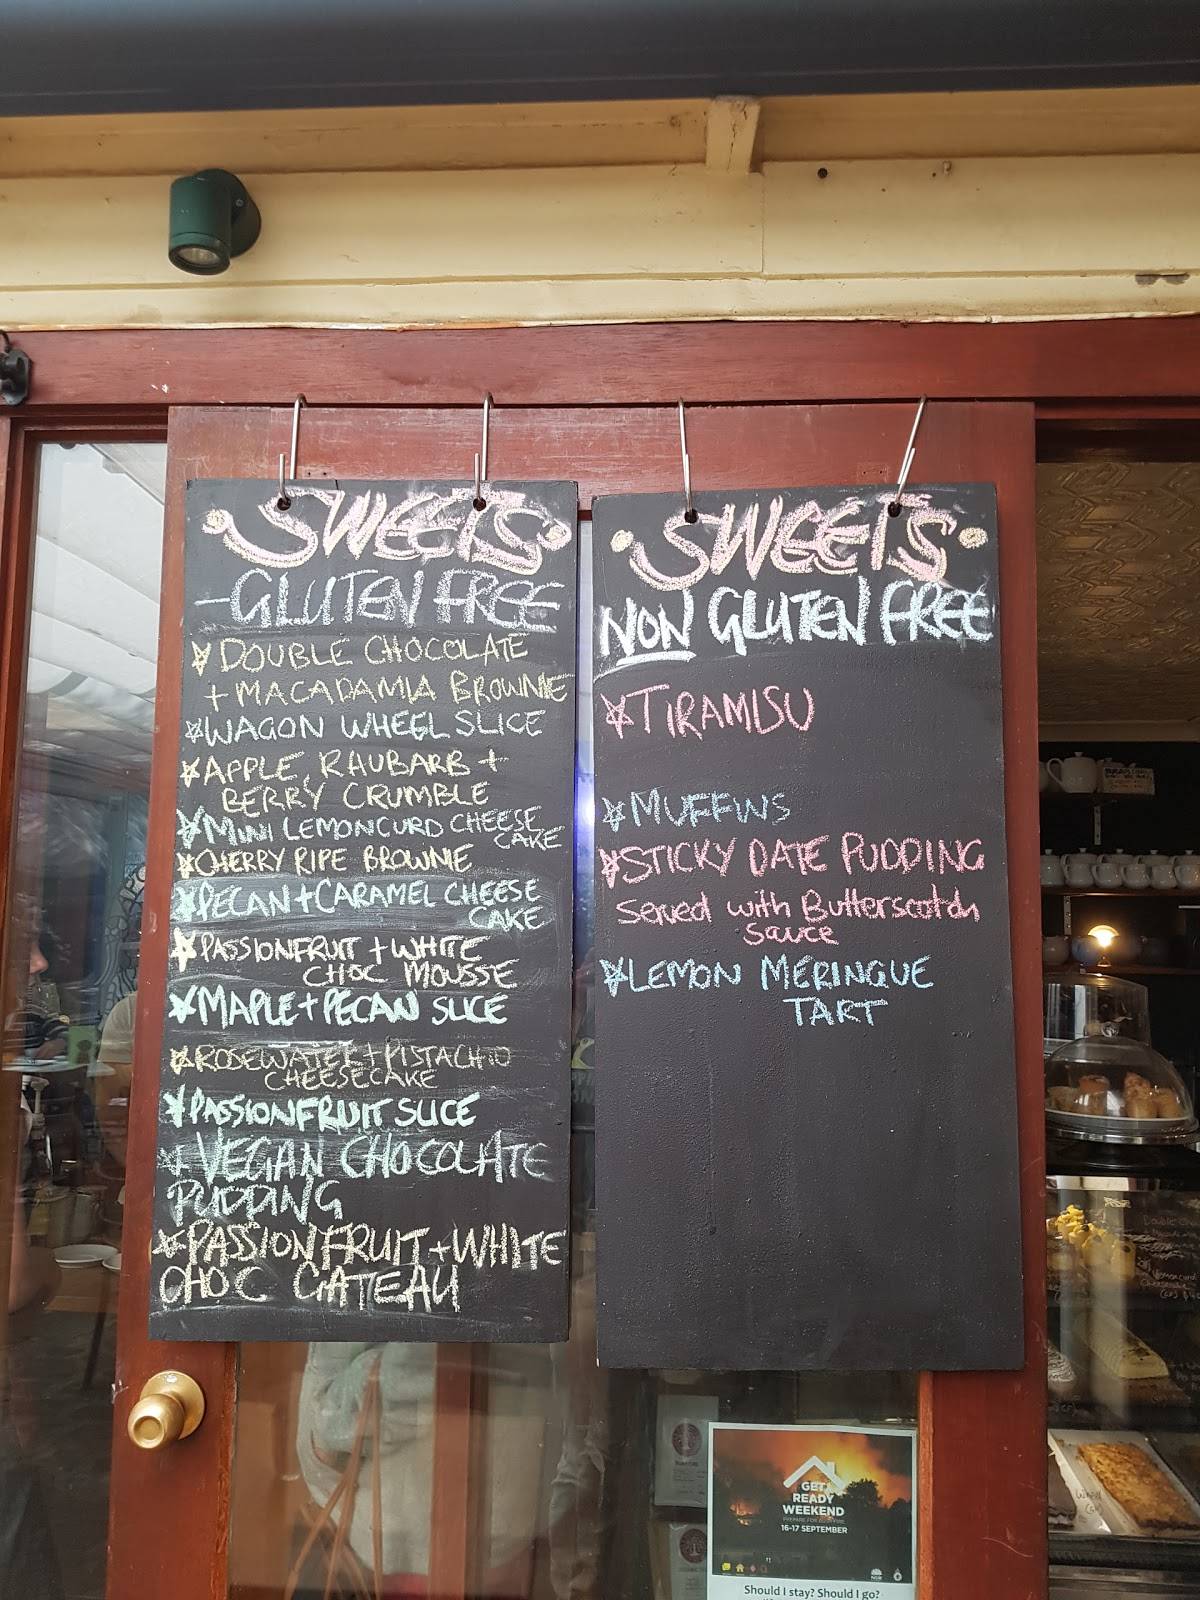 SWEETS
-GLUTEN FREE
DOUBLE CHOCOLATE
+ MACADAMIA BROWNIE
WAGON WHEEL SLICE
APPLE, RHUBARB +
BERRY CRUMBLE
MINI LEMONCURD CHEESE
CAKE
CHERRY RIPE BROWNIE
PECAN + CARAMEL CHEESE
CAKE
PASSIONFRUIT + WHITE
CHOC MOUSSE
MAPLE + PECAN SLICE
ROSEWATER + PISTACHIO
CHEESECAKE
PASSIONFRUIT SLICE
VEGAN CHOCOLATE
PUDDING
PASSIONFRUIT + WHITE
CHOC GATEAU
SWEETS
NON GLUTEN FREE
TIRAMISU
MUFFINS
STICKY DATE PUDDING
Served with Butterscotch
sauce
LEMON MERINGUE
TART
GET
READY
WEEKEND
PREPARE FOR BUSHFIRE
16-17 SEPTEMBER
Should I stay? Should I go?